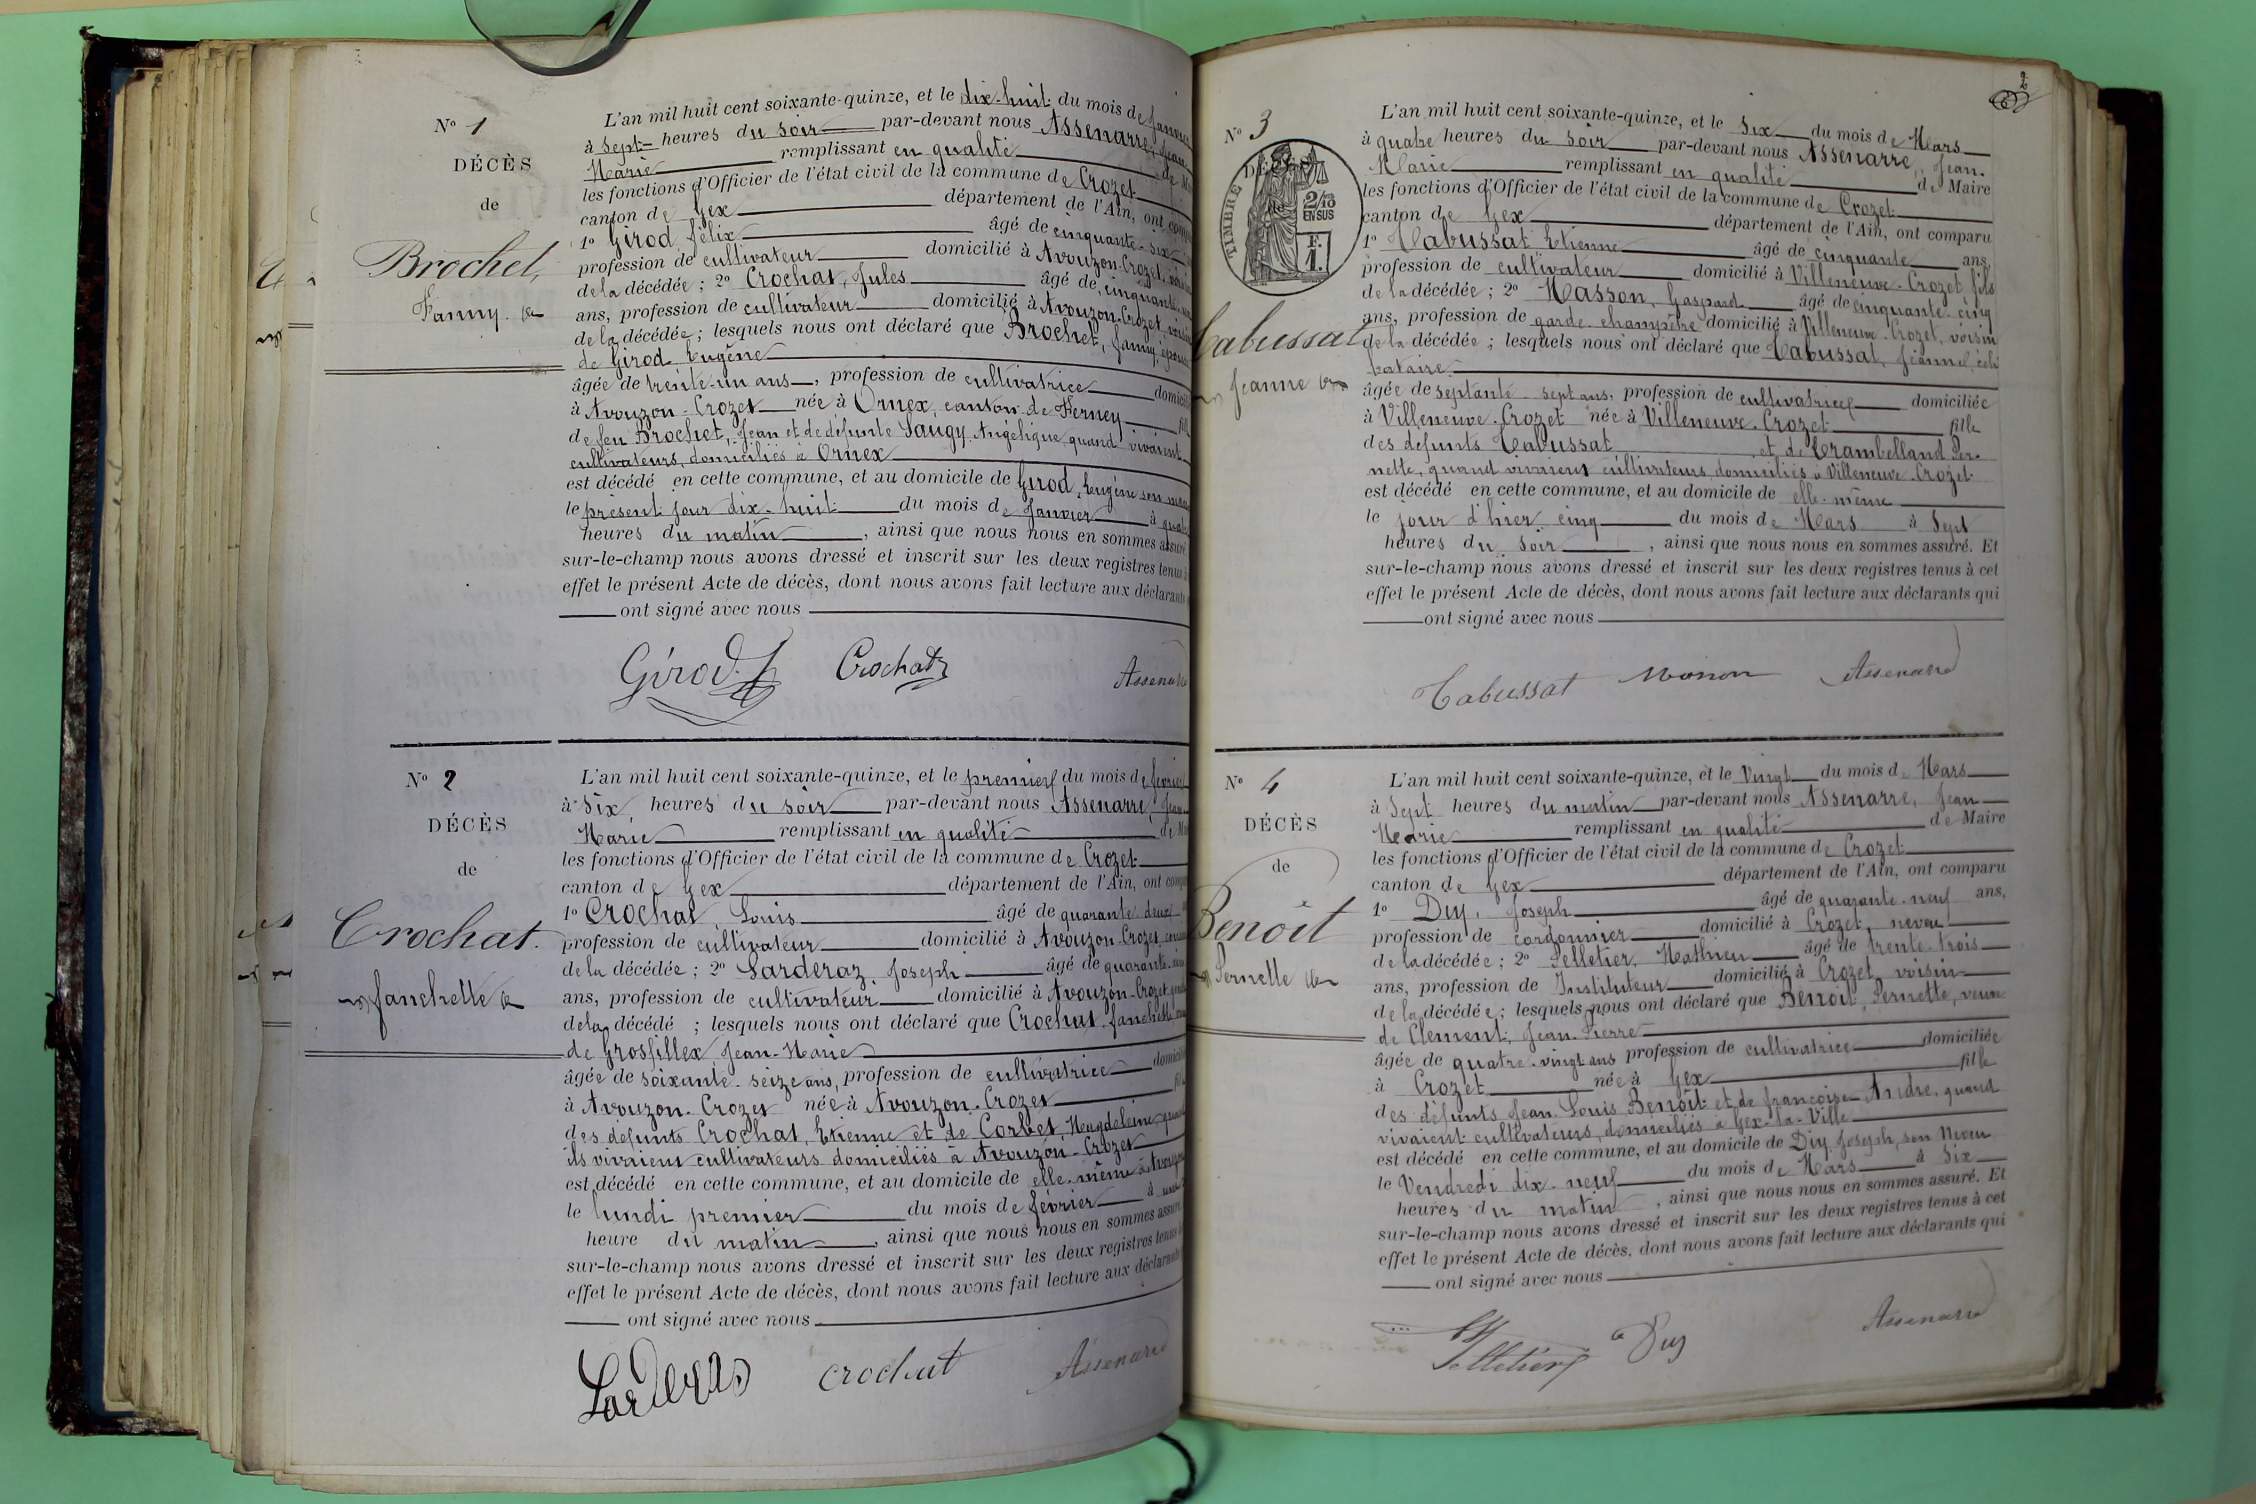 N° 1
DÉCÈS
de
Brochet,
Fanny.
L'an mil huit cent soixante-quinze, et le dix-huit du mois de Janvier
à sept heures du soir par-devant nous Assenarre, Jean
Marie remplissant en qualité de
les fonctions d'Officier de l'état civil de la commune de Crozet
canton de Gex département de l'Ain, ont
1° Girod, félix âgé de cinquante-six
profession de cultivateur domicilié à Avouzon-Crozet,
de la décédée ; 2° Crochat, Jules âgé de cinquante
ans, profession de cultivateur domicilié à Avouzon-Crozet,
de la décédée ; lesquels nous ont déclaré que Brochet, fanny, épouse
de Girod Eugène
âgée de trente-un ans, profession de cultivatrice
à Avouzon-Crozet née à Ornex, canton de Ferney
de feu Brochet, Jean et de défunte Saugy Angélique, quand vivaient
cultivateurs, domiciliés à Ornex
est décédé en cette commune, et au domicile de Girod, Eugène son
le présent jour dix-huit du mois de Janvier à
heures du matin, ainsi que nous nous en sommes assuré
sur-le-champ nous avons dressé et inscrit sur les deux registres tenus
effet le présent Acte de décès, dont nous avons fait lecture aux déclarants
ont signé avec nous
Girod. f Crochat J Assenarre
N° 2
DÉCÈS
de
Crochat.
fanchette
L'an mil huit cent soixante-quinze, et le premier du mois de février
à six heures du soir par-devant nous Assenarre, Jean
Marie remplissant en qualité de
les fonctions d'Officier de l'état civil de la commune de Crozet
canton de Gex département de l'Ain, ont
1° Crochat, Louis âgé de quarante deux
profession de cultivateur domicilié à Avouzon-Crozet,
de la décédée ; 2° Larderaz, Joseph âgé de quarante
ans, profession de cultivateur domicilié à Avouzon-Crozet,
de la décédé ; lesquels nous ont déclaré que Crochat, fanchette
de Grosfillex Jean-Marie
âgée de soixante-seize ans, profession de cultivatrice
à Avouzon-Crozet née à Avouzon-Crozet
des défunts Crochat, Etienne et de Corbet Magdeleine,
ils vivaient cultivateurs domiciliés à Avouzon-Crozet
est décédé en cette commune, et au domicile de elle-même à Avouzon
le lundi premier du mois de février à
heure du matin, ainsi que nous nous en sommes assuré
sur-le-champ nous avons dressé et inscrit sur les deux registres tenus
effet le présent Acte de décès, dont nous avons fait lecture aux déclarants
ont signé avec nous
Larderas crochat Assenarre
2
N° 3
DÉCÈS
de
TIMBRE
2/10
EN SUS
F.
1.
Tabussat
Jeanne
L'an mil huit cent soixante-quinze, et le six du mois de Mars
à quatre heures du soir par-devant nous Assenarre, Jean-
Marie remplissant en qualité de Maire
les fonctions d'Officier de l'état civil de la commune de Crozet
canton de Gex département de l'Ain, ont comparu
1° Tabussat Etienne âgé de cinquante ans,
profession de cultivateur domicilié à Villeneuve-Crozet fils
de la décédée ; 2° Masson, Gaspard âgé de cinquante-cinq
ans, profession de garde-champêtre domicilié à Villeneuve-Crozet, voisin
de la décédée ; lesquels nous ont déclaré que Tabussat, Jeanne, céli
bataire
âgée de septante-sept ans, profession de cultivatrice domiciliée
à Villeneuve-Crozet née à Villeneuve-Crozet fille
des défunts Tabussat et de Crambelland Per-
nette, quand vivaient cultivateurs, domiciliés à Villeneuve-Crozet
est décédé en cette commune, et au domicile de elle-même
le jour d'hier cinq du mois de Mars à sept
heures du soir, ainsi que nous nous en sommes assuré. Et
sur-le-champ nous avons dressé et inscrit sur les deux registres tenus à cet
effet le présent Acte de décès, dont nous avons fait lecture aux déclarants qui
ont signé avec nous
Tabussat Masson Assenarre
N° 4
DÉCÈS
de
Benoît
Pernette
L'an mil huit cent soixante-quinze, et le Vingt du mois de Mars
à sept heures du matin par-devant nous Assenarre, Jean
Marie remplissant en qualité de Maire
les fonctions d'Officier de l'état civil de la commune de Crozet
canton de Gex département de l'Ain, ont comparu
1° Duy, Joseph âgé de quarante-neuf ans,
profession de cordonnier domicilié à Crozet, neveu
de la décédée ; 2° Pelletier, Mathieu âgé de trente-trois
ans, profession de Instituteur domicilié à Crozet, voisin
de la décédée ; lesquels nous ont déclaré que Benoit, Pernette, veuve
de Clement, Jean-Pierre
âgée de quatre-vingt ans profession de cultivatrice domiciliée
à Crozet née à Gex fille
des défunts Jean-Louis Benoît et de françoise Andre, quand
vivaient cultivateurs, domiciliés à Gex-la-Ville
est décédé en cette commune, et au domicile de Duy Joseph, son Neveu
le Vendredi dix-neuf du mois de Mars à six
heures du matin, ainsi que nous nous en sommes assuré. Et
sur-le-champ nous avons dressé et inscrit sur les deux registres tenus à cet
effet le présent Acte de décès, dont nous avons fait lecture aux déclarants qui
ont signé avec nous
Pelletier Duy Assenarre